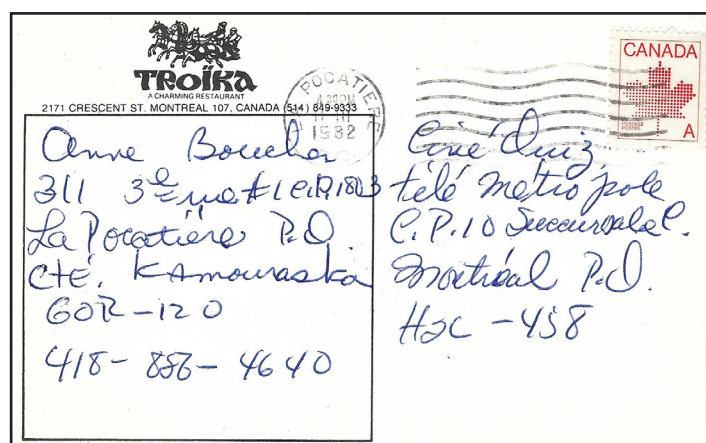 TROÏKA
A CHARMING RESTAURANT
2171 CRESCENT ST. MONTREAL 107, CANADA (514) 849-9333
LA POCATIERE
PM
1982
CANADA
POSTAGE
POSTES
A
Anne Boucher
311 3e rue #1 C.P. 1803
La Pocatière P.Q.
Cté. Kamouraska
G0R-1Z0
418-856-4640
Ciné Quiz,
télé métropole
C.P. 10 Succursale C.
Montréal P.Q.
H2C-4S8